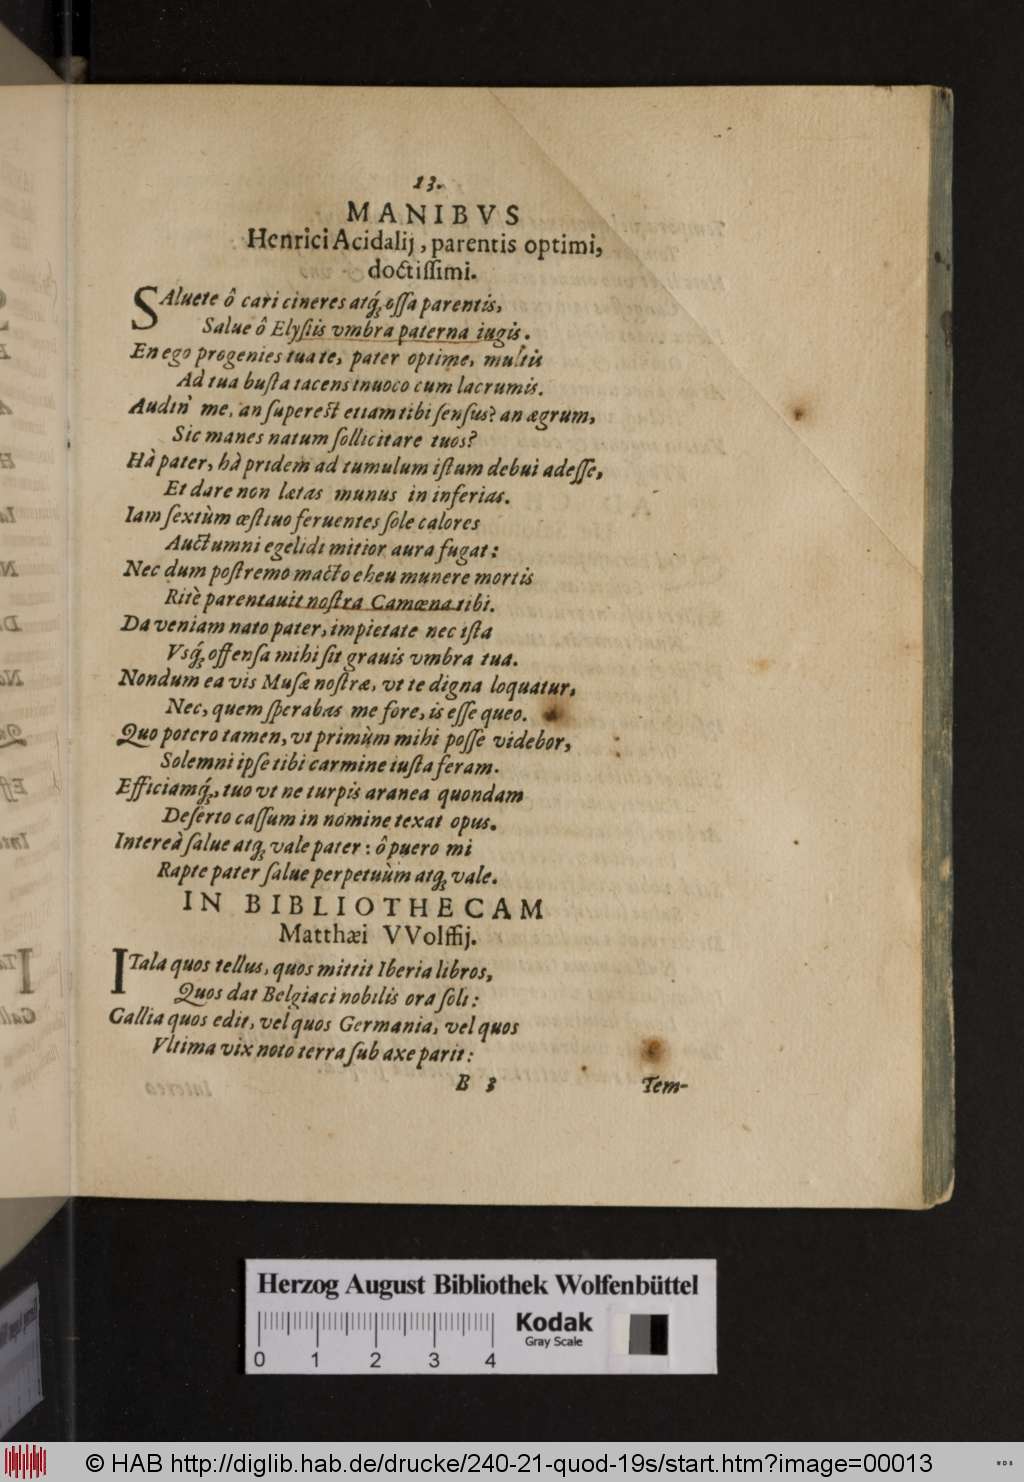 13.
MANIBVS
Henrici Acidalij, parentis optimi,
doctiſſimi.
SAluete ô cari cineres atq́ꝫ oſſa parentis,
Salue ô Elyſiis vmbra paterna iugis.
En ego progenies tua te, pater optime, multis
Ad tua buſta tacens inuoco cum lacrumis.
Audin' me, an ſupereſt etiam tibi ſenſus? an ægrum,
Sic manes natum ſollicitare tuos?
Hà pater, hà pridem ad tumulum iſtum debui adeſſe,
Et dare non lætas munus in inferias.
Iam ſextùm æſtiuo feruentes ſole calores
Auctumni egelidi mitior aura fugat:
Nec dum poſtremo macto eheu munere mortis
Ritè parentauit noſtra Camœna tibi.
Da veniam nato pater, impietate nec iſta
Vsq́ꝫ offenſa mihi ſit grauis vmbra tua.
Nondum ea vis Muſæ noſtræ, vt te digna loquatur,
Nec, quem ſperabas me fore, is eſſe queo.
Quo potero tamen, vt primùm mihi poſſe videbor,
Solemni ipſe tibi carmine iuſta feram.
Efficiamq́ꝫ, tuo vt ne turpis aranea quondam
Deſerto caſſum in nomine texat opus.
Intereà ſalue atqꝫ vale pater: ô puero mi
Rapte pater ſalue perpetuùm atqꝫ vale.
IN BIBLIOTHECAM
Matthæi VVolffij.
ITala quos tellus, quos mittit Iberia libros,
Quos dat Belgiaci nobilis ora ſoli:
Gallia quos edit, vel quos Germania, vel quos
Vltima vix noto terra ſub axe parit:
B 3
Tem-
Herzog August Bibliothek Wolfenbüttel
Kodak
Gray Scale
0 1 2 3 4
© HAB http://diglib.hab.de/drucke/240-21-quod-19s/start.htm?image=00013